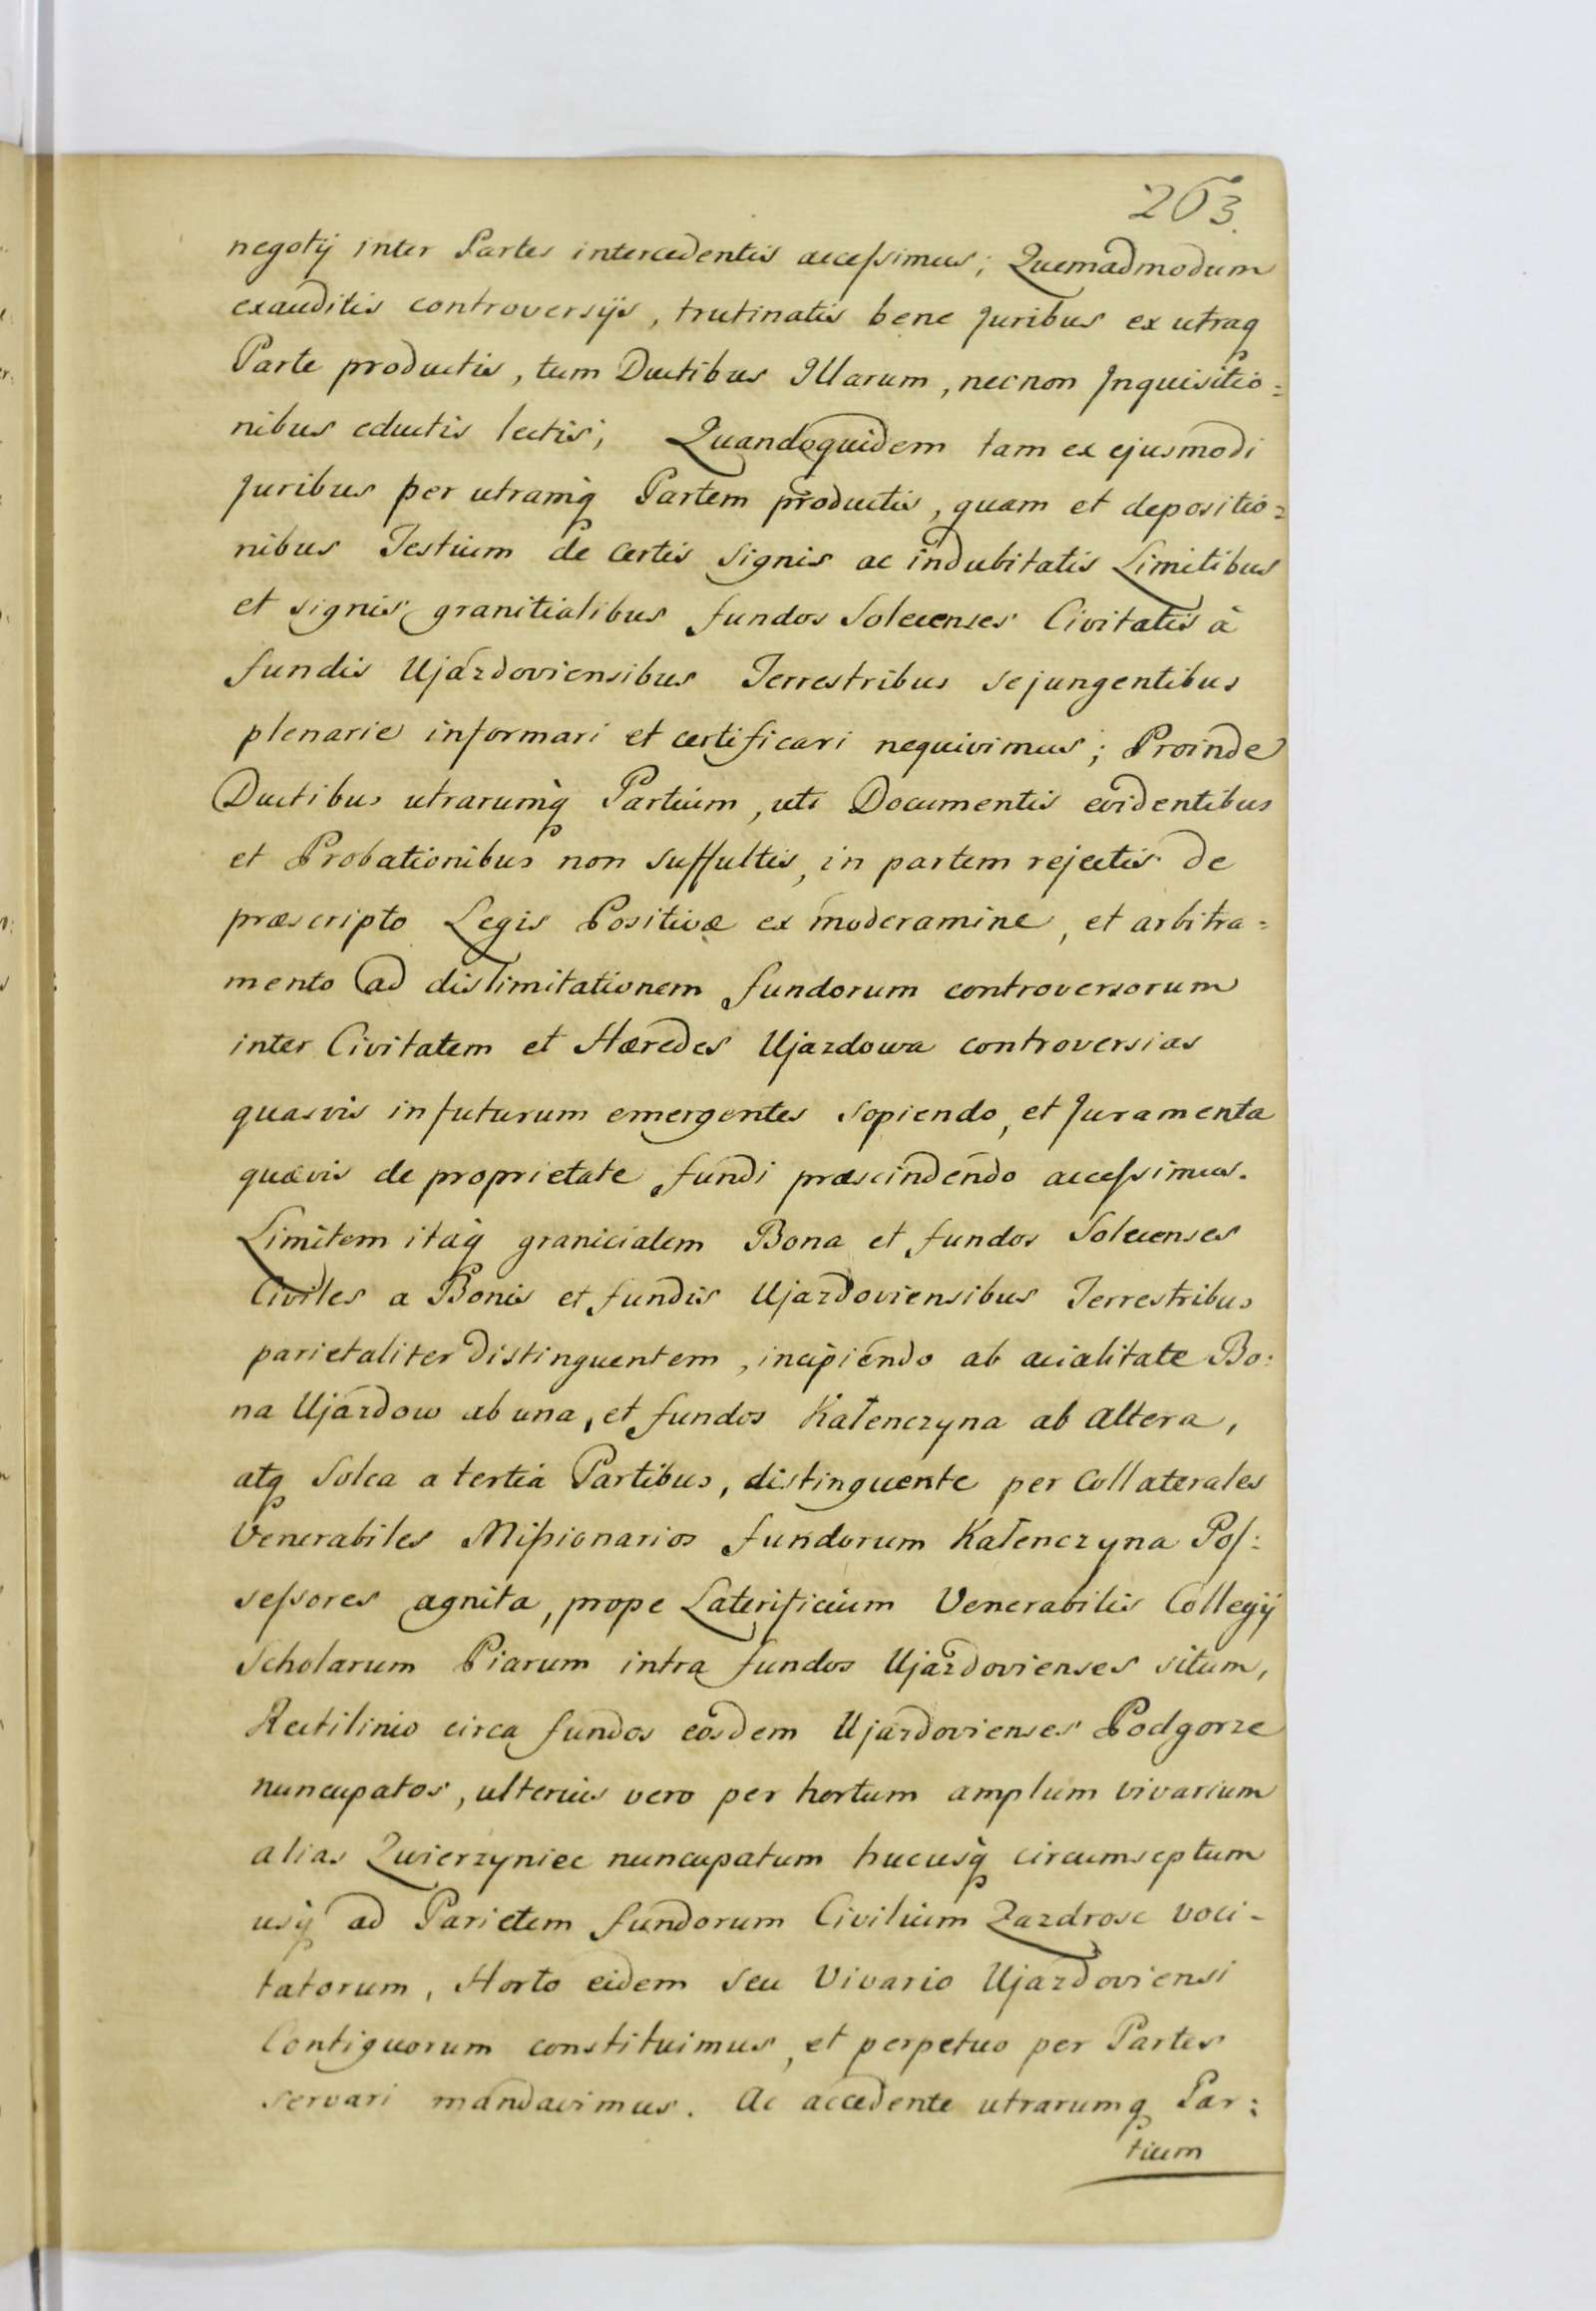 263.
negotij inter Partes intercedentis accessimus; Quemadmodum
exauditis controversijs, trutinatis bene Juribus ex utraq
Parte productis, tum Ductibus Illarum, necnon Inquisitio=
nibus eductis lectis; Quandoquidem tam ex ejusmodi
Juribus per utramq Partem productis, quam et depositio=
nibus Testium de certis signis ac indubitatis Limitibus
et signis granitialibus fundos Solecenses Civitatis à
fundis Ujazdoviensibus Terrestribus sejungentibus
plenarie informari et certificari nequivimus; Proinde
Ductibus utrarumq Partium, uti Documentis evidentibus
et Probationibus non suffultis, in partem rejectis de
præscripto Legis Positivæ ex moderamine, et arbitra=
mento ad dislimitationem fundorum controversorum
inter Civitatem et Hæredes Ujazdowa controversias
quasvis in futurum emergentes sopiendo, et Juramenta
quævis de proprietate fundi præscindendo accessimus.
Limitem itaq granicialem Bona et fundos Solecenses
Civiles a Bonis et fundis Ujazdoviensibus Terrestribus
parietaliter distinguentem, incipiendo ab acialitate Bo:
na Ujazdow ab una, et fundos Kałenczyna ab altera,
atq Solca a tertia Partibus, distinguente per Collaterales
Venerabiles Missionarios fundorum Kałenczyna Pos:
sessores agnita, prope Laterificium Venerabilis Collegij
Scholarum Piarum intra fundos Ujazdovienses situm,
Rectilinio circa fundos eosdem Ujazdovienses Podgorze
nuncupatos, ulterius vero per hortum amplum vivarium
alias Zwierzyniec nuncupatum hucusq circumseptum
usq ad Parietem fundorum Civilium Zazdrosc voci-
tatorum, Horto eidem seu Vivario Ujazdoviensi
Contiguorum constituimus, et perpetuo per Partes
servari mandavimus. Ac accedente utrarumq Par:
tium